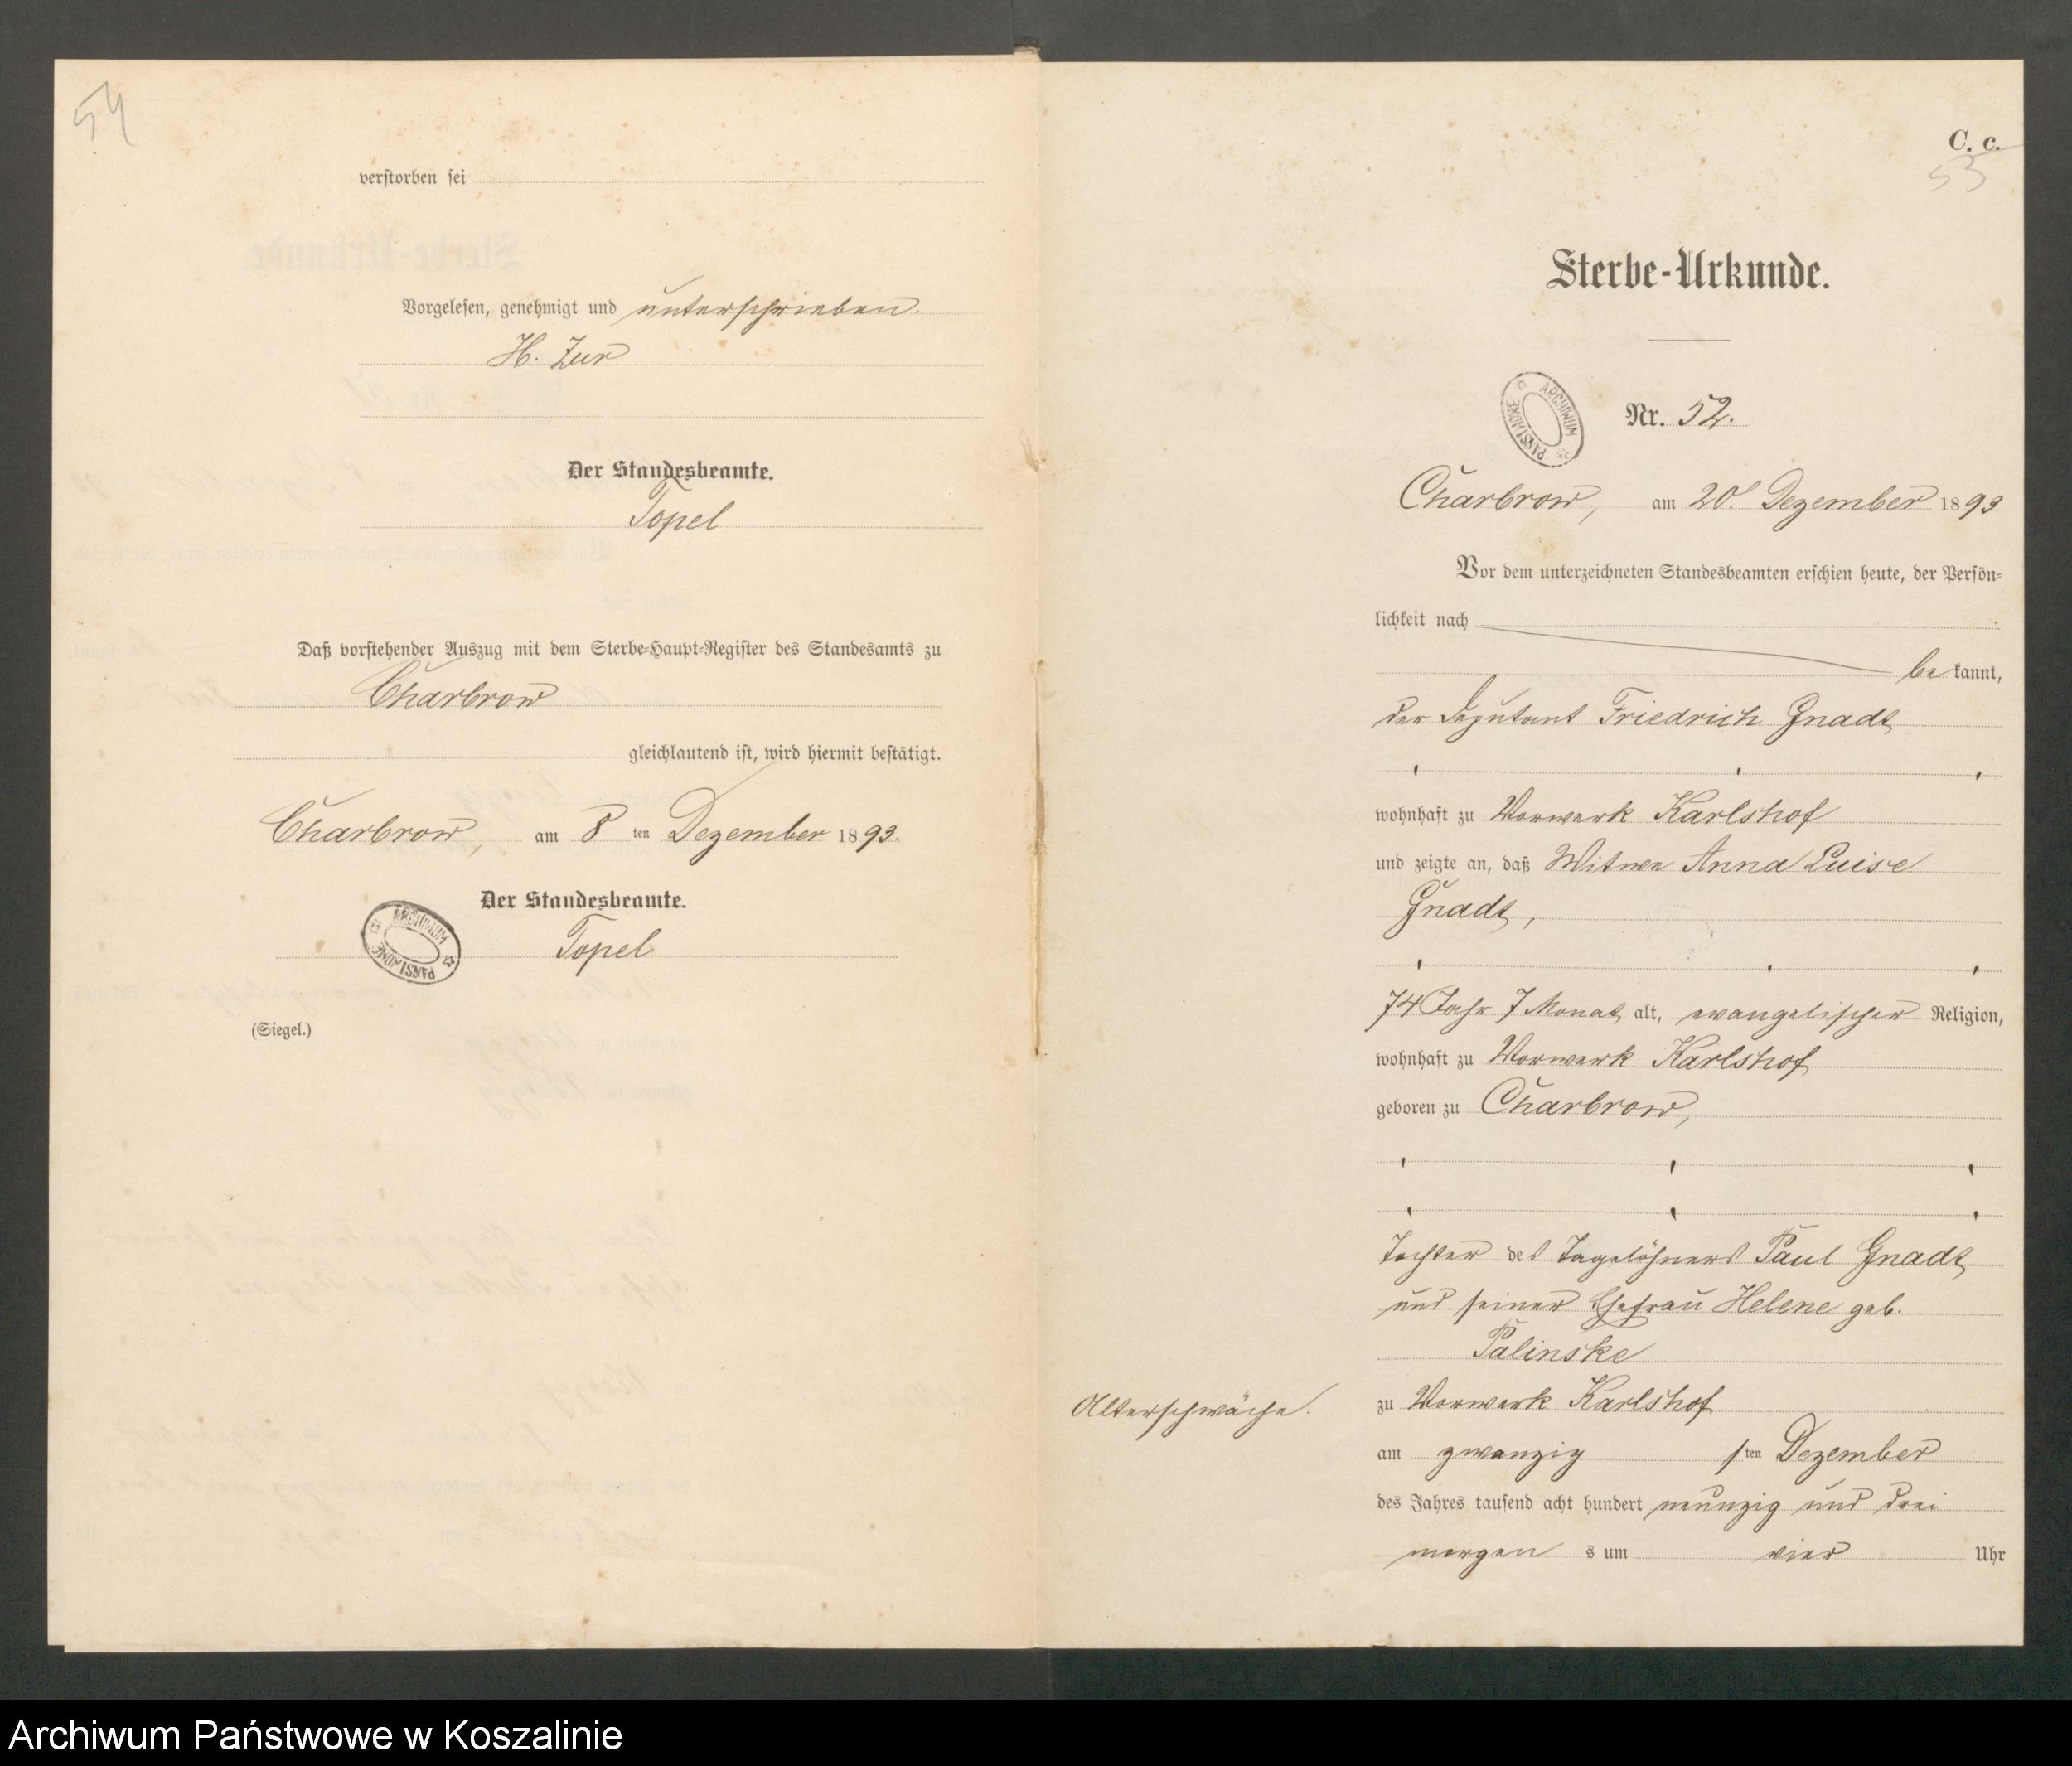 54
verstorben sei
Vorgelesen, genehmigt und unterschrieben.
H. Zur
Der Standesbeamte.
Topel
Daß vorstehender Auszug mit dem Sterbe-Haupt-Register des Standesamts zu
Charbrow
gleichlautend ist, wird hiermit bestätigt.
Charbrow, am 8ten Dezember 1893.
Der Standesbeamte.
Topel
ARCHIWUM PAŃSTWOWE
(Siegel.)
C. c.
53
Sterbe-Urkunde.
ARCHIWUM PAŃSTWOWE
Nr. 52.
Charbrow, am 20t. Dezember 1893
Vor dem unterzeichneten Standesbeamten erschien heute, der Persön-
lichkeit nach
bekannt,
der Deputant Friedrich Gnadt
wohnhaft zu Vorwerk Karlshof
und zeigte an, daß Witwe Anna Luise
Gnadt,
74 Jahr 7 Monat alt, evangelischer Religion,
wohnhaft zu Vorwerk Karlshof
geboren zu Charbrow,
Tochter des Tagelöhners Paul Gnadt
und seiner Ehefrau Helene geb.
Palinske
Alterschwäche.
zu Vorwerk Karlshof
am zwanzigsten Dezember
des Jahres tausend acht hundert neunzig und drei
morgens um vier Uhr
Archiwum Państwowe w Koszalinie